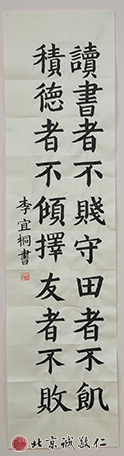 讀書者不賤守田者不飢
積德者不傾擇友者不敗
李宜桐書
北京诚敬仁